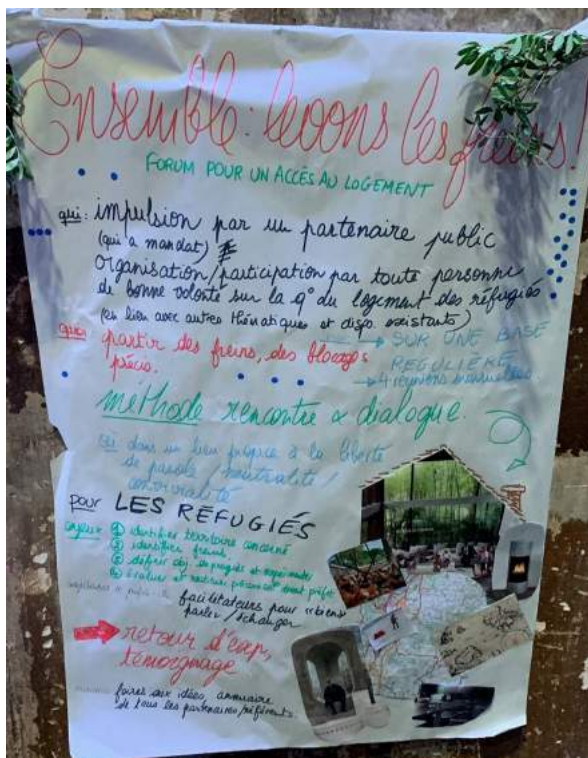 Ensemble : levons les freins !
FORUM POUR UN ACCÈS AU LOGEMENT
qui : impulsion par un partenaire public
(qui a mandat)
organisation/participation par toute personne
de bonne volonté sur la q° du logement des réfugiés
(en lien avec autres thématiques et disp. existants)
quoi partir des freins, des blocages
précis.
→ SUR UNE BASE
RÉGULIÈRE
→ 4 réunions
méthode rencontre & dialogue.
où dans un lieu propice à la liberté
de parole / neutralité /
convivialité
pour LES RÉFUGIÉS
enjeux ① identifier territoire concerné
② identifier freins
③ définir obj. et
④ évaluer et
facilitateurs pour
parler / échanger
retour d'exp,
témoignage
foires aux idées, annuaire
de tous les partenaires/référents.